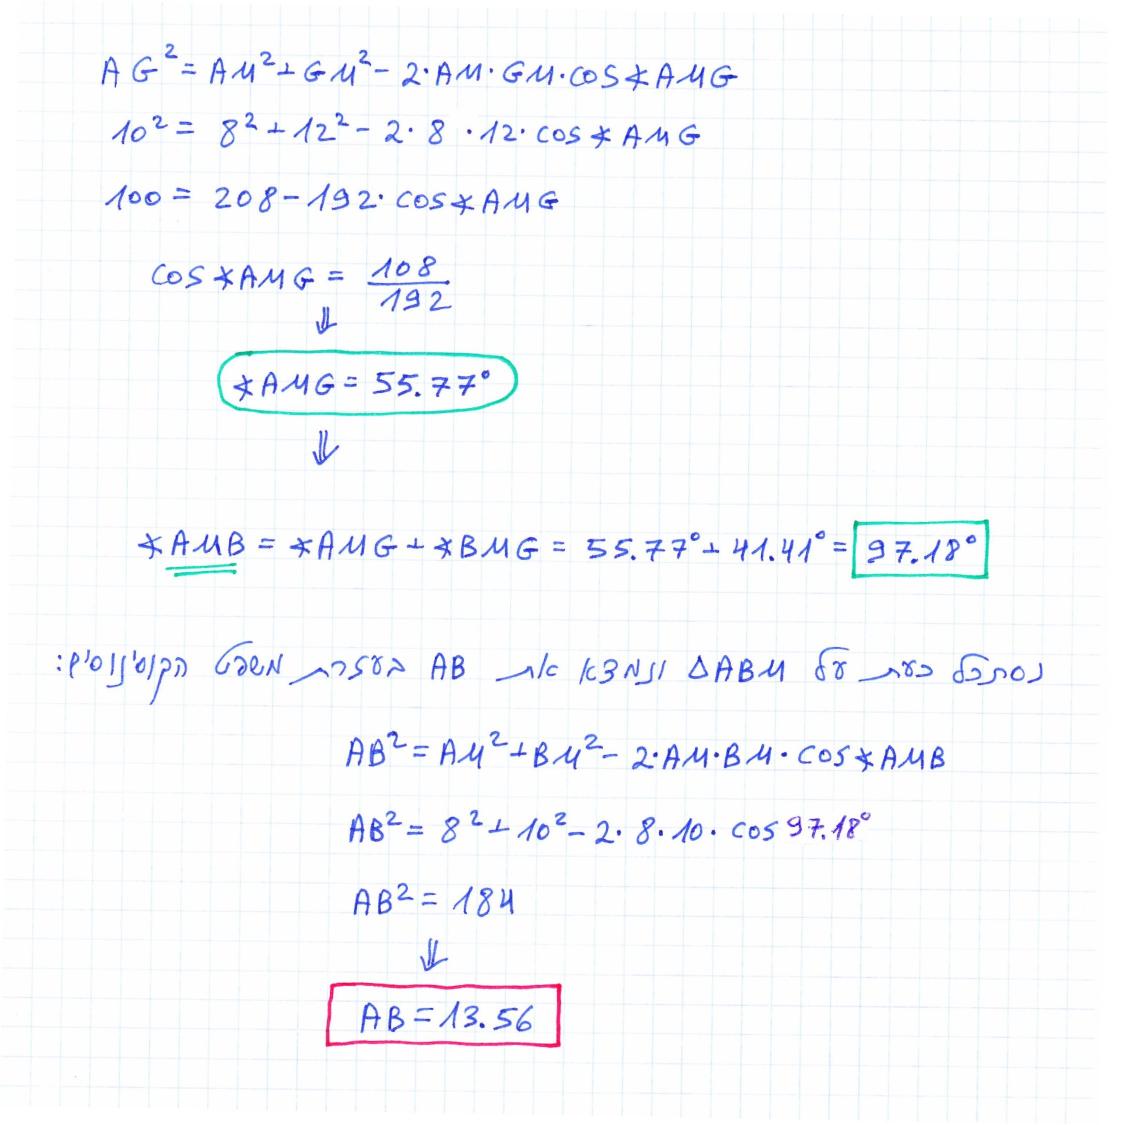 AG² = AM² + GM² - 2·AM·GM·cos∢AMG
10² = 8² + 12² - 2·8·12·cos∢AMG
100 = 208 - 192·cos∢AMG
cos∢AMG = 108/192
⇓
∢AMG = 55.77°
⇓
∢AMB = ∢AMG + ∢BMG = 55.77° + 41.41° = 97.18°
נסתכל כעת על ΔABM ונמצא את AB בעזרת משפט הקוסינוסים:
AB² = AM² + BM² - 2·AM·BM·cos∢AMB
AB² = 8² + 10² - 2·8·10·cos97.18°
AB² = 184
⇓
AB = 13.56